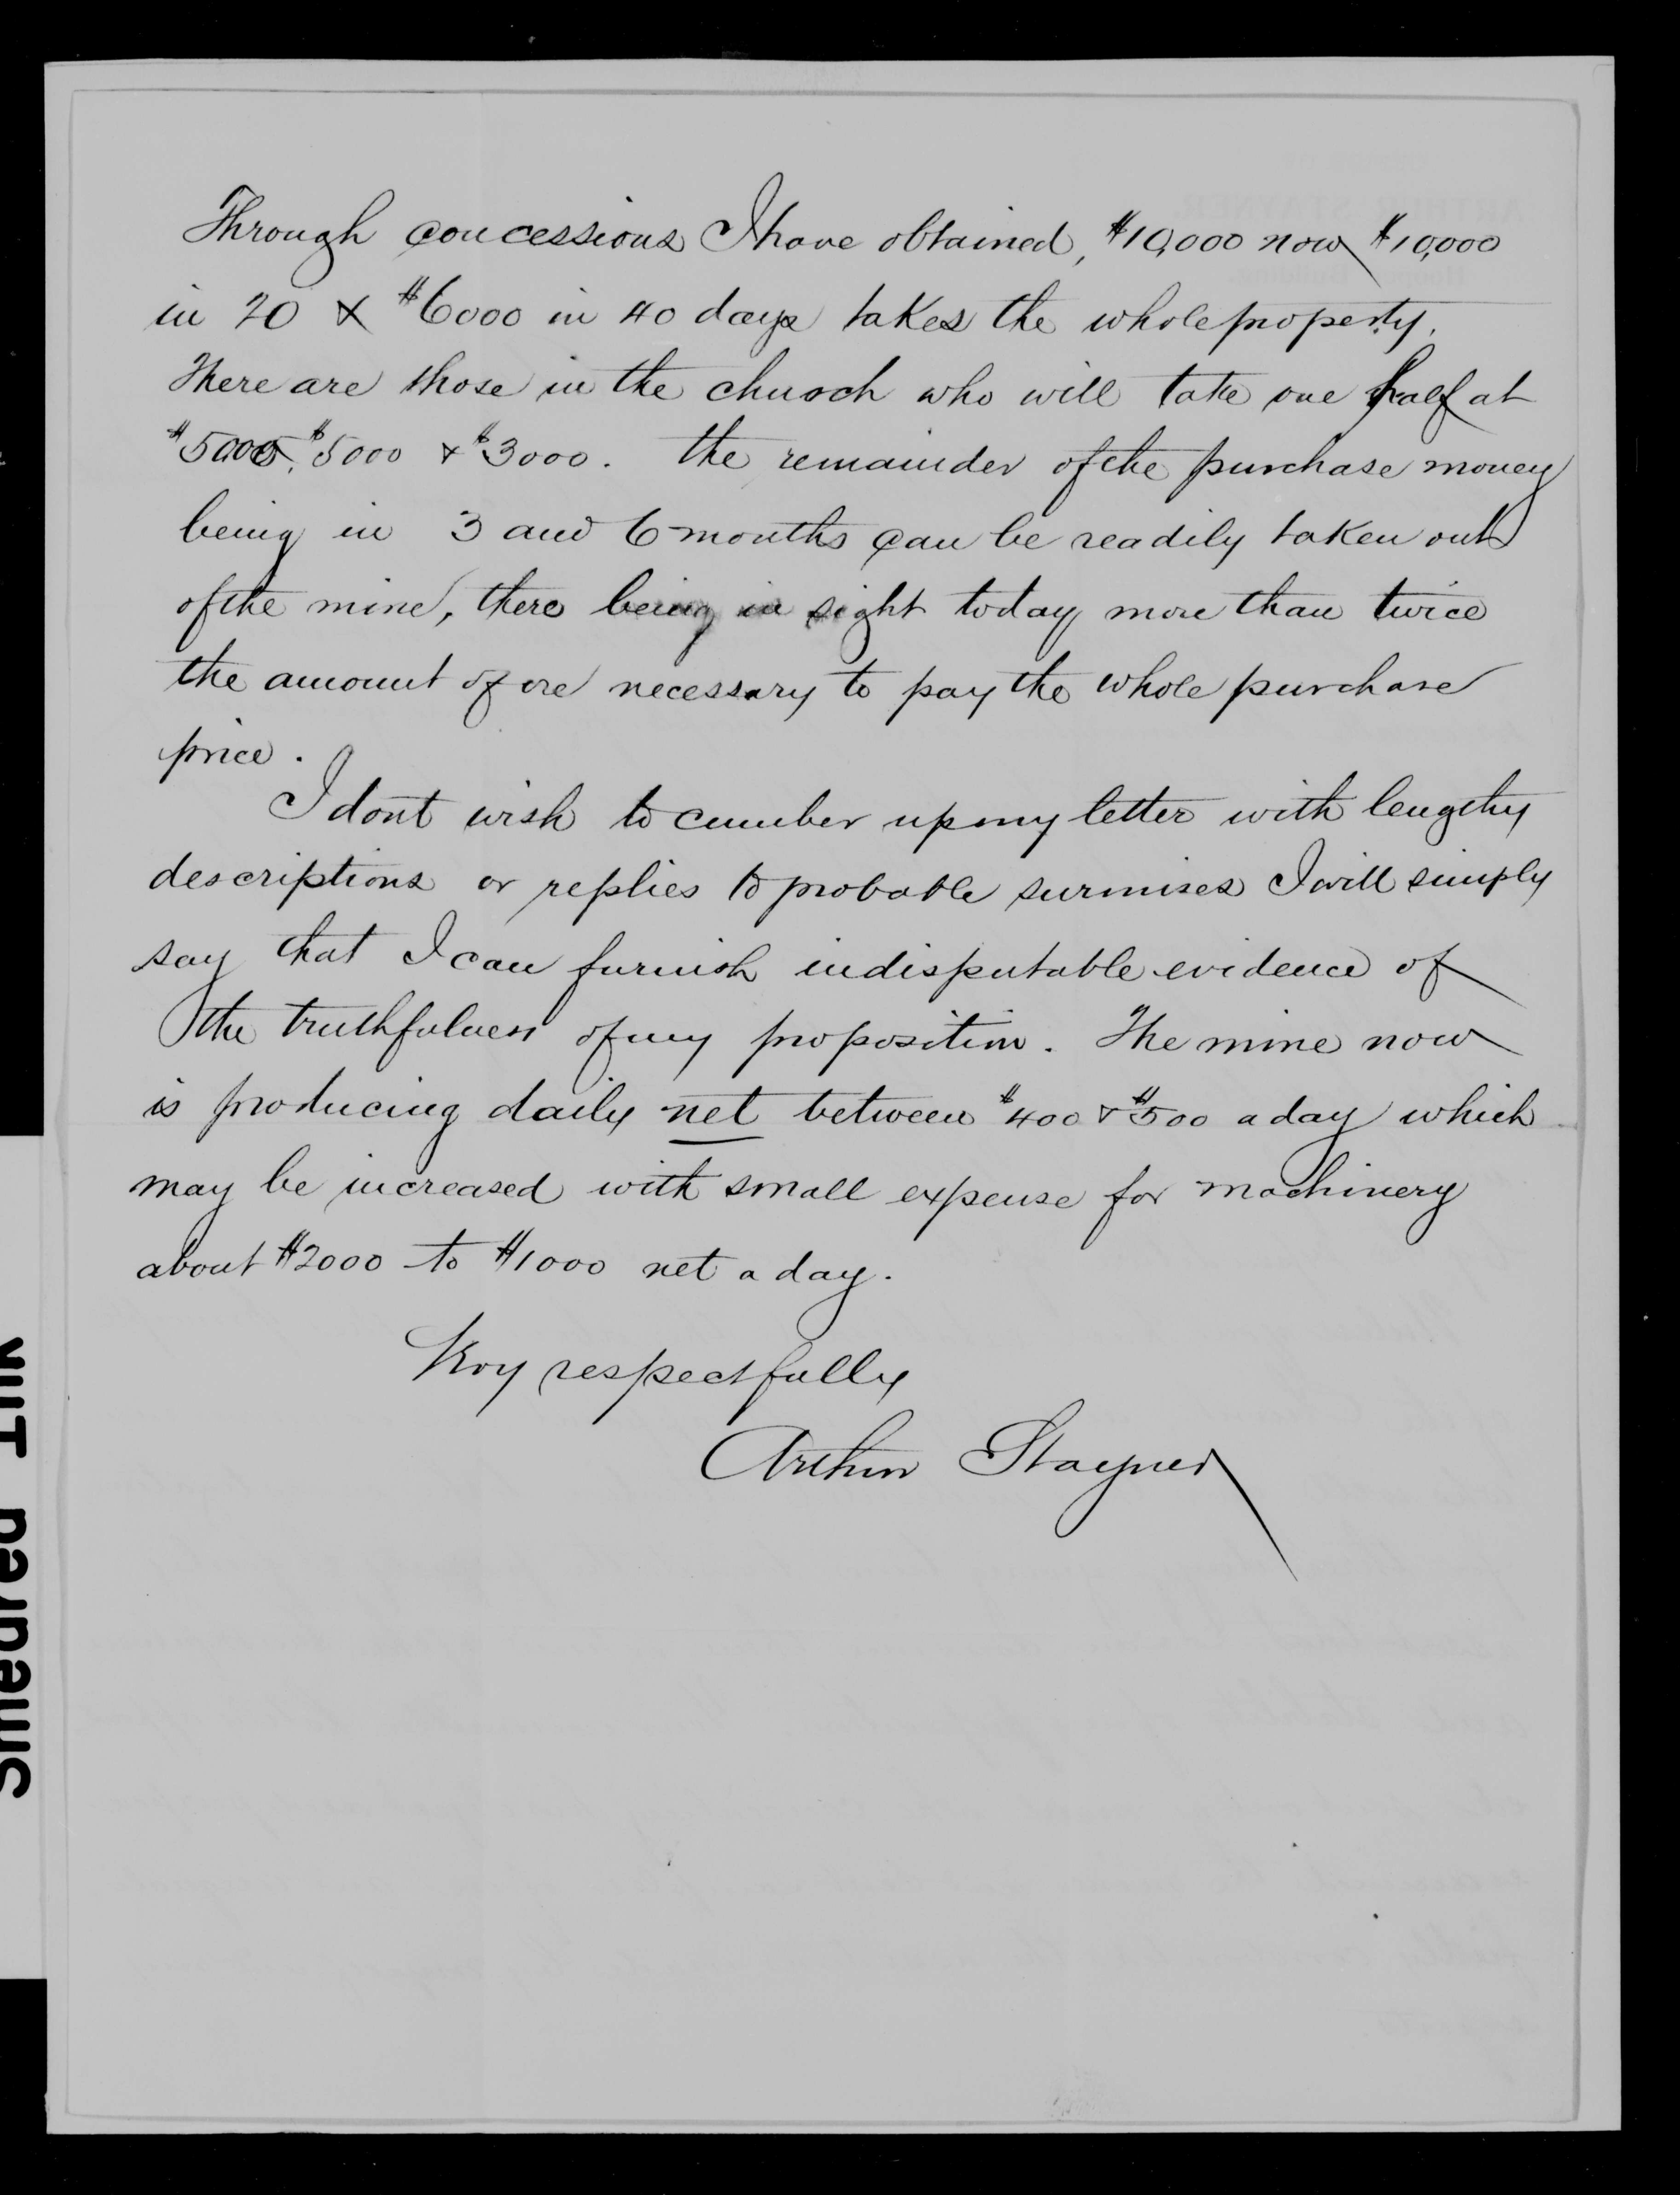 Through concessions I have obtained, $10,000 now $10,000
in 20 & $6000 in 40 days takes the whole property.
There are those in the church who will take one half at
$5000, $5000 & $3000. the remainder of the purchase money
being in 3 and 6 months can be readily taken out
of the mine, there being in sight today more than twice
the amount of ore necessary to pay the whole purchase
price.
I dont wish to cumber up my letter with lengthy
descriptions or replies to probable surmises I will simply
say that I can furnish indisputable evidence of
the truthfulness of my proposition. The mine now
is producing daily net between $400 & $500 a day which
may be increased with small expense for machinery
about $2000 to $1000 net a day.
Very respectfully
Arthur Stayner